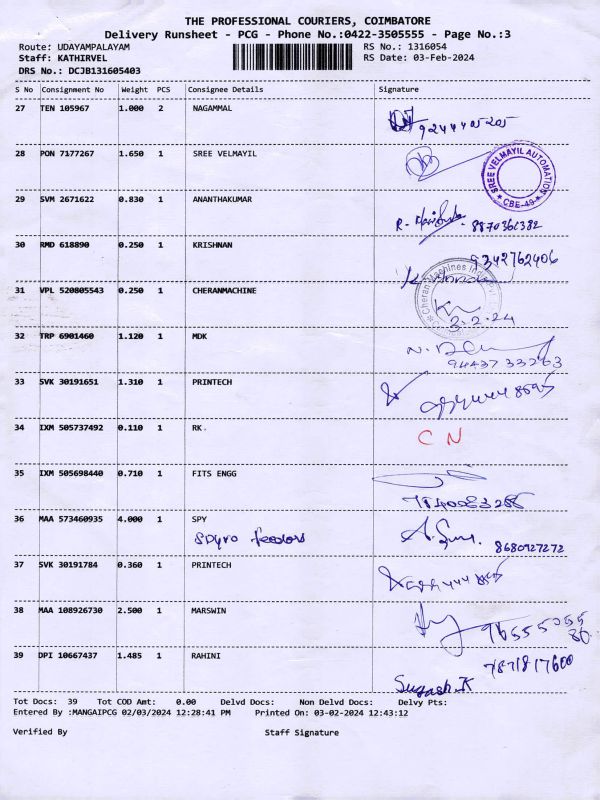 THE PROFESSIONAL COURIERS, COIMBATORE
Delivery Runsheet - PCG - Phone No.:0422-3505555 - Page No.:3
Route: UDAYAMPALAYAM RS No.: 1316054
Staff: KATHIRVEL RS Date: 03-Feb-2024
DRS No.: DCJB131605403
S No Consignment No Weight PCS Consignee Details Signature
27 TEN 105967 1.000 2 NAGAMMAL
28 PON 7177267 1.650 1 SREE VELMAYIL
SREE VELMAYIL AUTOMATION
CBE-49
29 SVM 2671622 0.830 1 ANANTHAKUMAR
8870362382
30 RMD 618890 0.250 1 KRISHNAN
9342762406
31 VPL 520805543 0.250 1 CHERANMACHINE
Cheran Machines
3-2-24
32 TRP 6901460 1.120 1 MDK
94437 33263
33 SVK 30191651 1.310 1 PRINTECH
34 IXM 505737492 0.110 1 RK.
C N
35 IXM 505698440 0.710 1 FITS ENGG
36 MAA 573460935 4.000 1 SPY
Spyro feedors
8680927272
37 SVK 30191784 0.360 1 PRINTECH
38 MAA 108926730 2.500 1 MARSWIN
96555 055
80
39 DPI 10667437 1.485 1 RAHINI
7871817600
Sugash.K
Tot Docs: 39 Tot COD Amt: 0.00 Delvd Docs: Non Delvd Docs: Delvy Pts:
Entered By :MANGAIPCG 02/03/2024 12:28:41 PM Printed On: 03-02-2024 12:43:12
Verified By Staff Signature